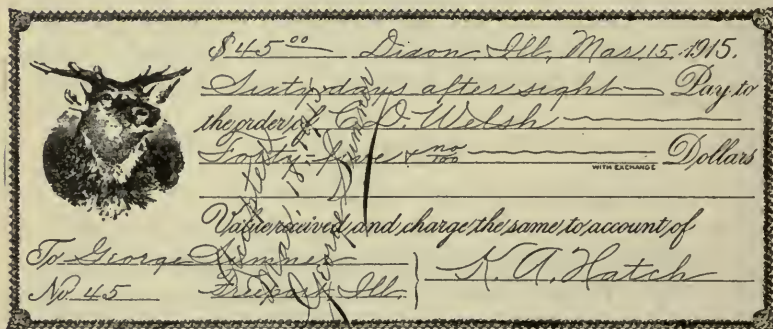 $45.00 Dixon, Ill, Mar. 15, 1915.
Sixty days after sight Pay to
the order of E. D. Welsh
Forty-five & no/100 Dollars
WITH EXCHANGE
Value received and charge the same to account of
To George Sumner
No. 45 Freeport Ill.
K. A. Hatch
Accepted
Mar. 18, 1915
George Sumner